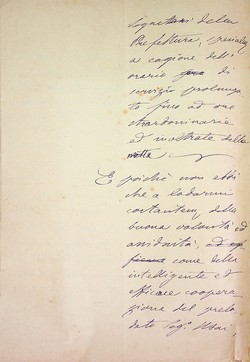 della
Prefettura, specialm
a cagione dell'
orario di
servizio prolunga
to fino ad ore
straordinarie
ed inoltrate della
notte
E poichè non ebbi
che a lodarmi
costantem. della
buona volontà ed
assiduità,
come della
intelligente ed
efficace coopera
zione del preto
dato Sig.